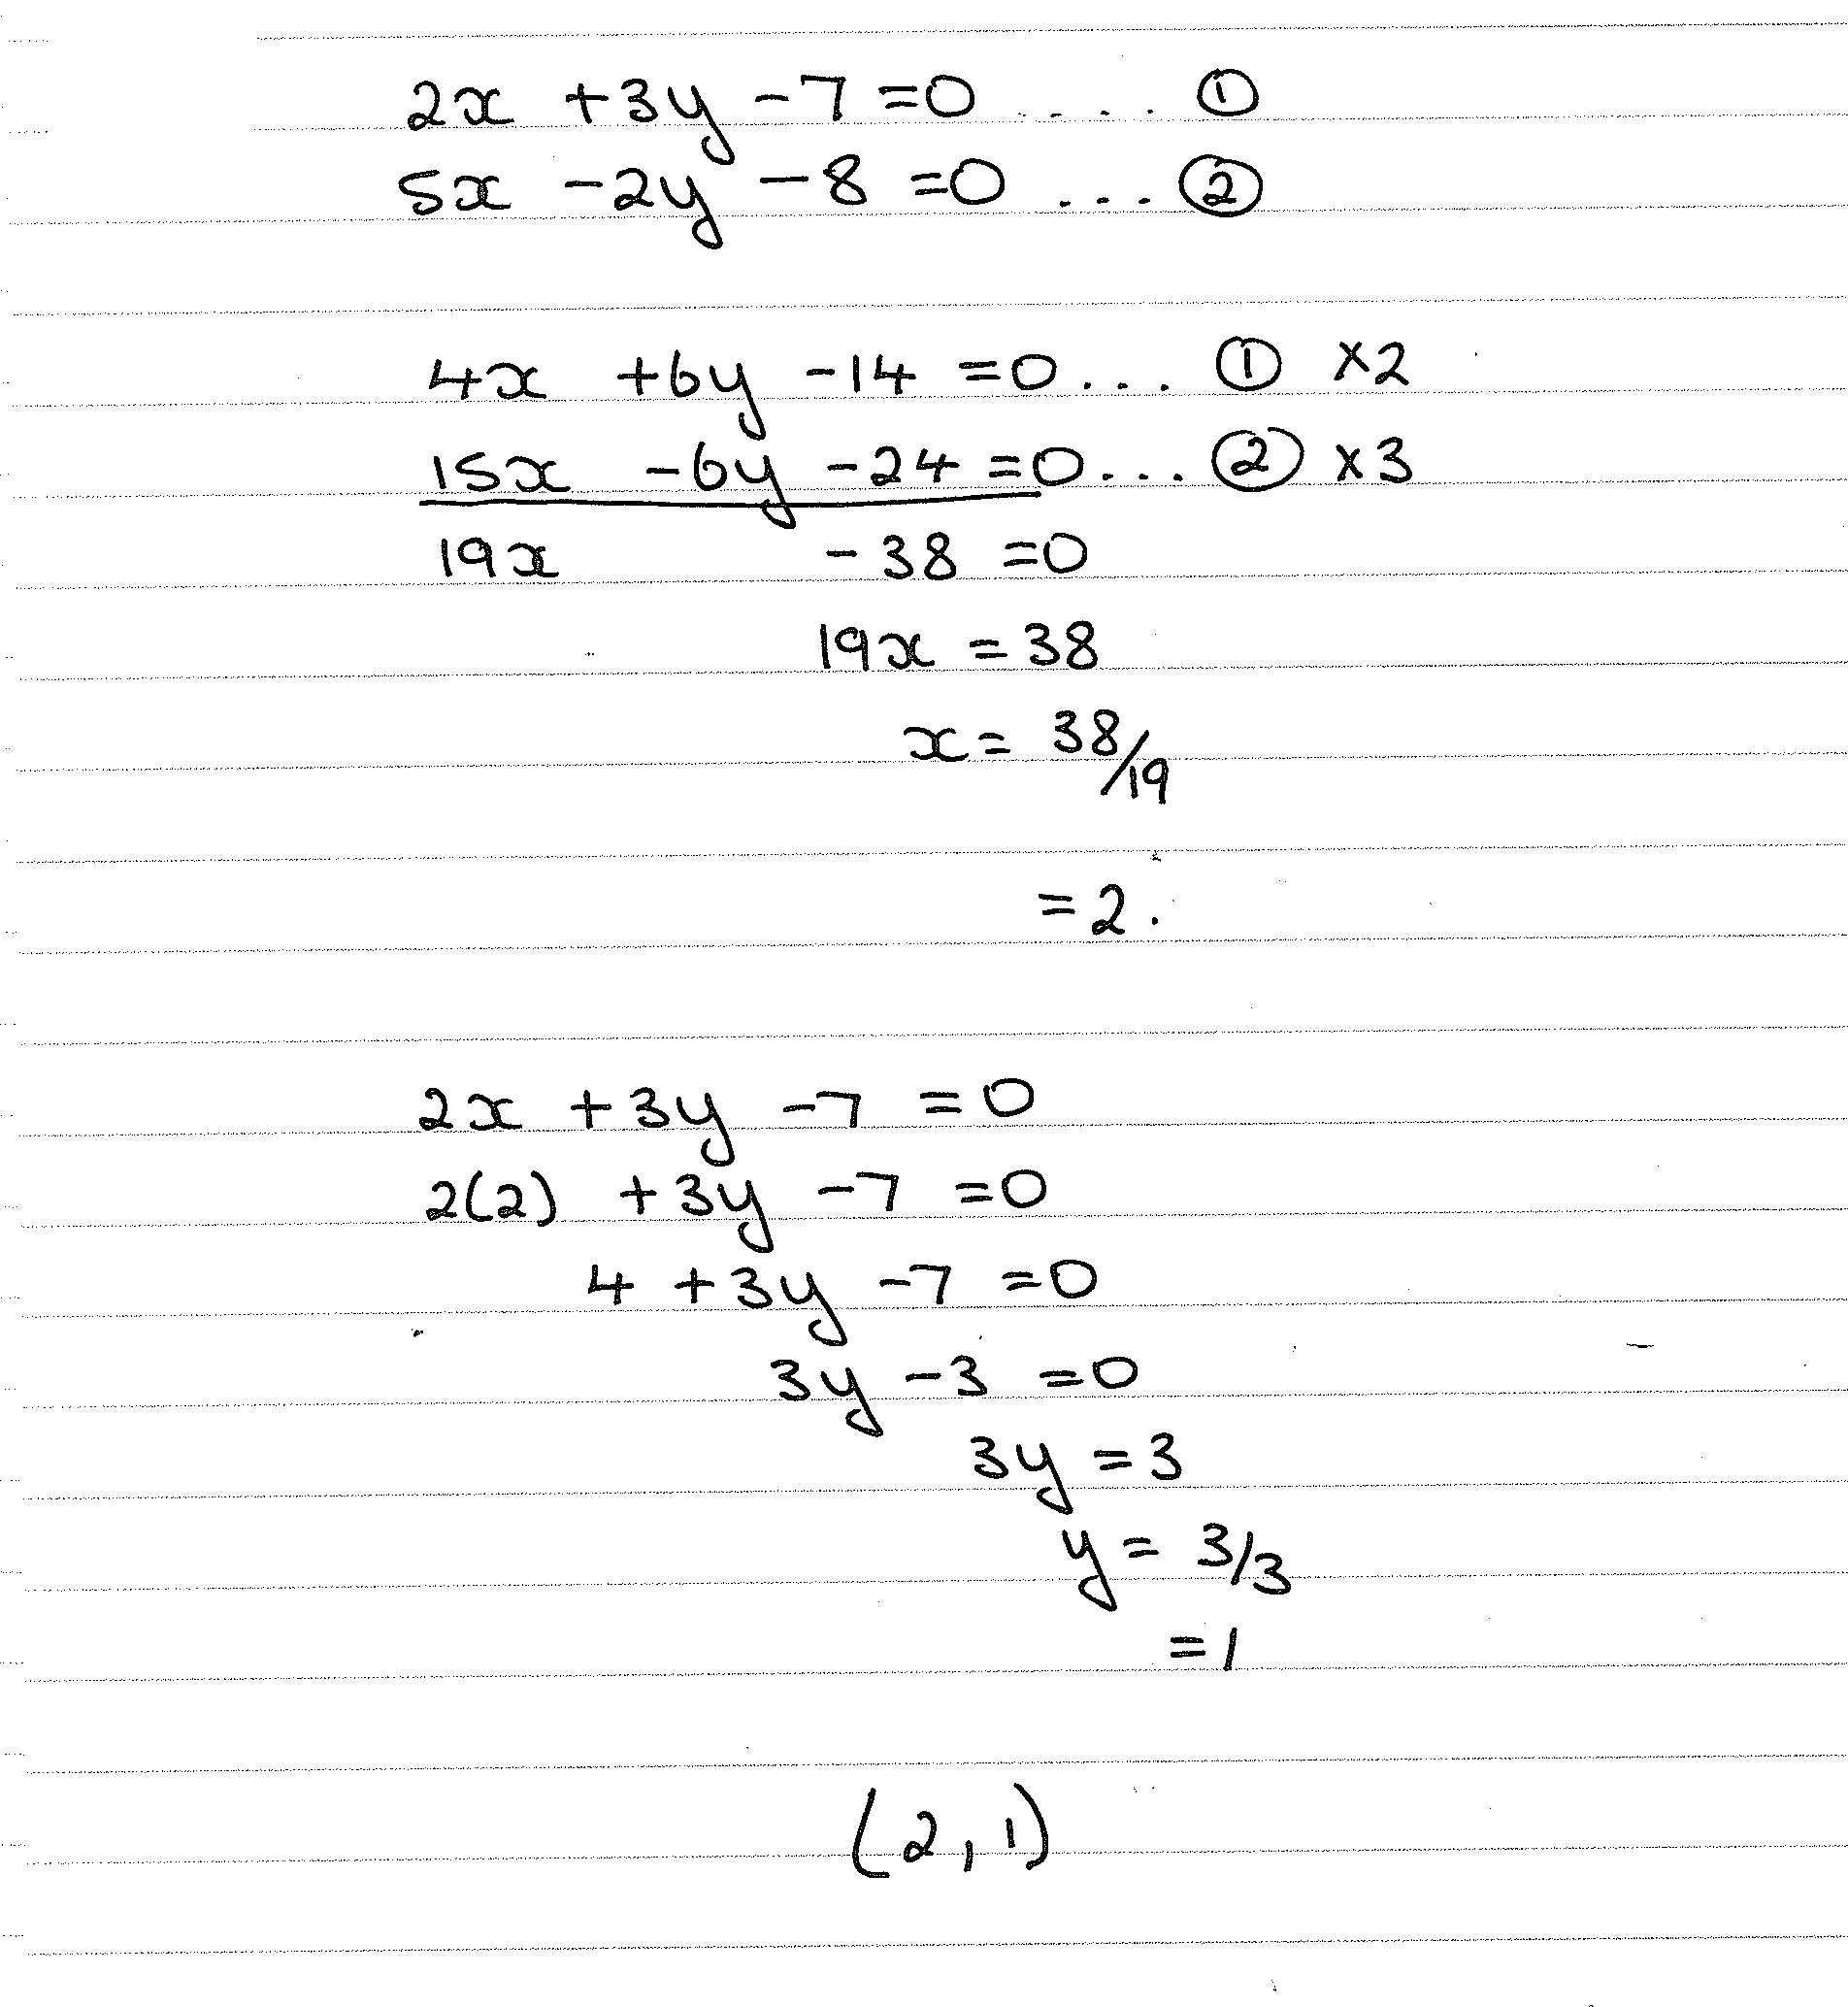 2x + 3y - 7 = 0 .... ①
5x - 2y - 8 = 0 ... ②
4x + 6y - 14 = 0 ... ① ×2
15x - 6y - 24 = 0 ... ② ×3
19x - 38 = 0
19x = 38
x = 38/19
= 2.
2x + 3y - 7 = 0
2(2) + 3y - 7 = 0
4 + 3y - 7 = 0
3y - 3 = 0
3y = 3
y = 3/3
= 1
(2, 1)